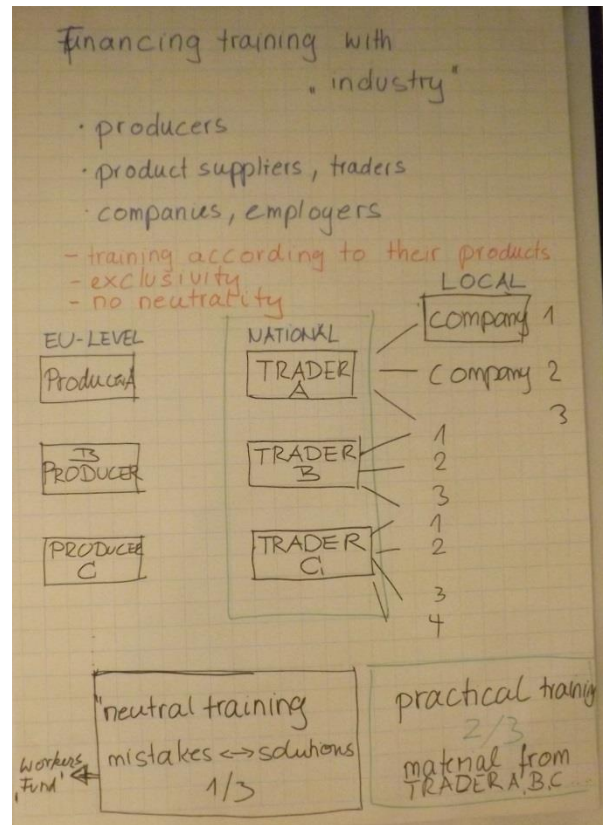 Financing training with
„industry"
· producers
· product suppliers, traders
· companies, employers
- training according to their products
- exclusivity
- no neutrality
EU-LEVEL
Producer A
B
PRODUCER
PRODUCER
C
NATIONAL
TRADER
A
TRADER
B
TRADER
C
LOCAL
company 1
company 2
3
1
2
3
1
2
3
4
"neutral training
mistakes <-> solutions
1/3
workers
'Fund'
practical trainig
2/3
material from
TRADER A, B, C...